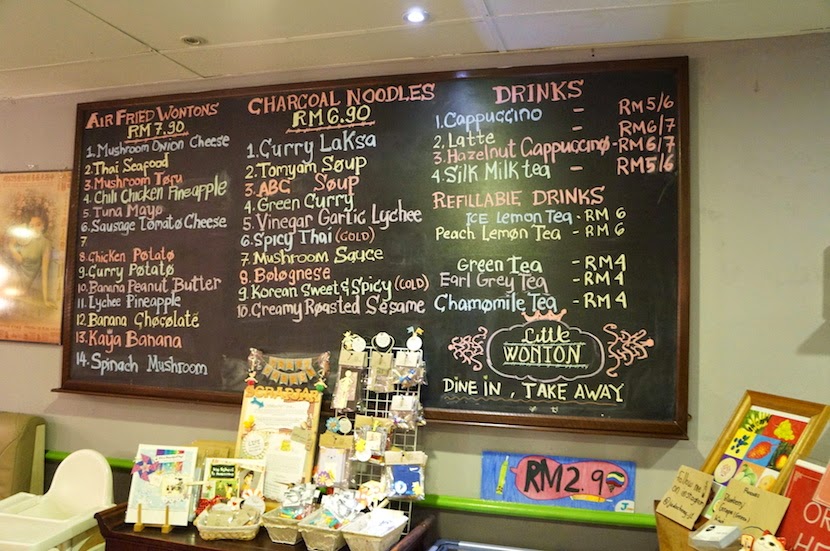 AIR FRIED WONTONS
RM 7.90
1. Mushroom Onion Cheese
2. Thai Seafood
3. Mushroom Toru
4. Chili Chicken Pineapple
5. Tuna Mayo
6. Sausage Tomato Cheese
7
8. Chicken Potato
9. Curry Potato
10. Banana Peanut Butter
11. Lychee Pineapple
12. Banana Chocolate
13. Kaya Banana
14. Spinach Mushroom
CHARCOAL NOODLES
RM 6.90
1. Curry Laksa
2. Tomyam Soup
3. ABC Soup
4. Green Curry
5. Vinegar Garlic Lychee
6. Spicy Thai (COLD)
7. Mushroom Sauce
8. Bolognese
9. Korean Sweet & Spicy (COLD)
10. Creamy Roasted Sesame
DRINKS
1. Cappuccino - RM 5/6
2. Latte - RM 6/7
3. Hazelnut Cappuccino - RM 6/7
4. Silk Milk tea - RM 5/6
REFILLABLE DRINKS
ICE Lemon Tea - RM 6
Peach Lemon Tea - RM 6
Green Tea - RM 4
Earl Grey Tea - RM 4
Chamomile Tea - RM 4
Little
WONTON
DINE IN, TAKE AWAY
RM2.9